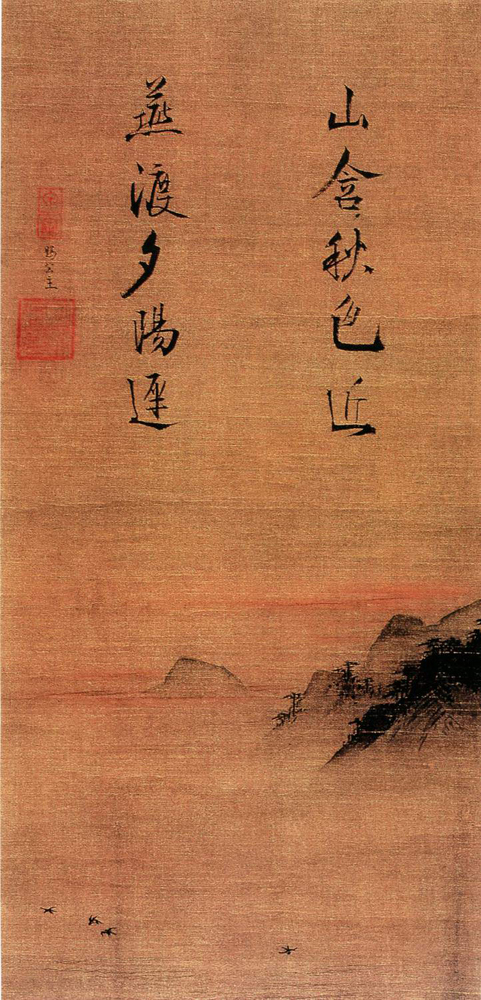 山含秋色近
燕渡夕陽遲
賜公主